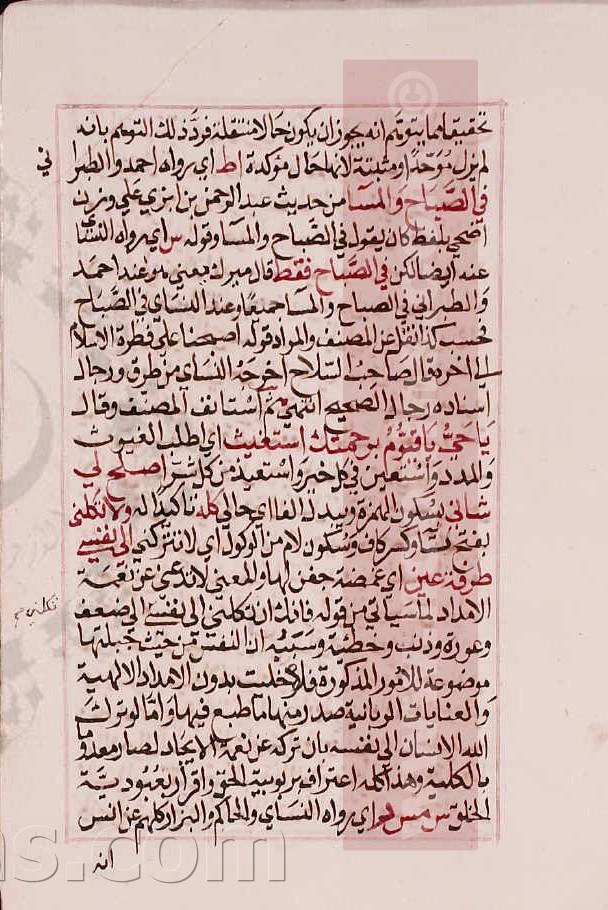 تحقيقا مما يتوهم انه يجوز ان يكون حالا منتقلة فرد ذلك التوهم بانه
لم يزل موحدا ومثبتة لانها حال مؤكدة اط اي رواه احمد والطبرا
ني
في الصباح والمسا من حديث عبد الرحمن بن ابزي علي وزن
اضحي بلفظ كان يقول في الصباح والمسا وقوله س اي رواه النساي
عنه ايضا لكن في الصباح فقط قال ميرك يعني هو عند احمد
والطبراني في الصباح والمسا جميعا وعند النساي في الصباح
فحسب كذا نقل عن المصنف والمراد قوله اصبحنا علي فطرة الاسلام
الي اخره قال صاحب السلاح اخرجه النساي من طرق ورجال
اسناده رجال الصحيح انتهي ثم استانف المصنف وقال
يا حي يا قيوم برحمتك استغيث اي اطلب الغيوث
والمدد واستعين في كل خير واستعيذ من كل شر اصلح لي
شاني بسكون الهمزة ويبدل الفا اي حالي كله تاكيد له ولا تكلني
بفتح تا وكسر كاف وسكون لام من الوكول اي لا تتركني الي نفسي
طرفة عين اي غمضة جفن لها والمعني لا تدعني عن نعمة
الامداد لما سياتي من قوله فانك ان تكلني الي نفسي الي ضعف
وعورة وذنب وخطيئة وسببه ان النفس من حيث جبلتها
موضوعة للامور المذكورة فلا خليت بدون الامداد الالهية
والعنايات الربانية صدر منها ما طبع فيها واما لو ترك
الله الانسان الي نفسه بان تركه عن نعمة الايجاد لصار معدوما
بالكلية وهذا كله اعتراف بربوبية الحق واقرار بعبودية
الخلق س مس ر اي رواه النساي والحاكم والبزار كلهم عن انس
انه
ns.com